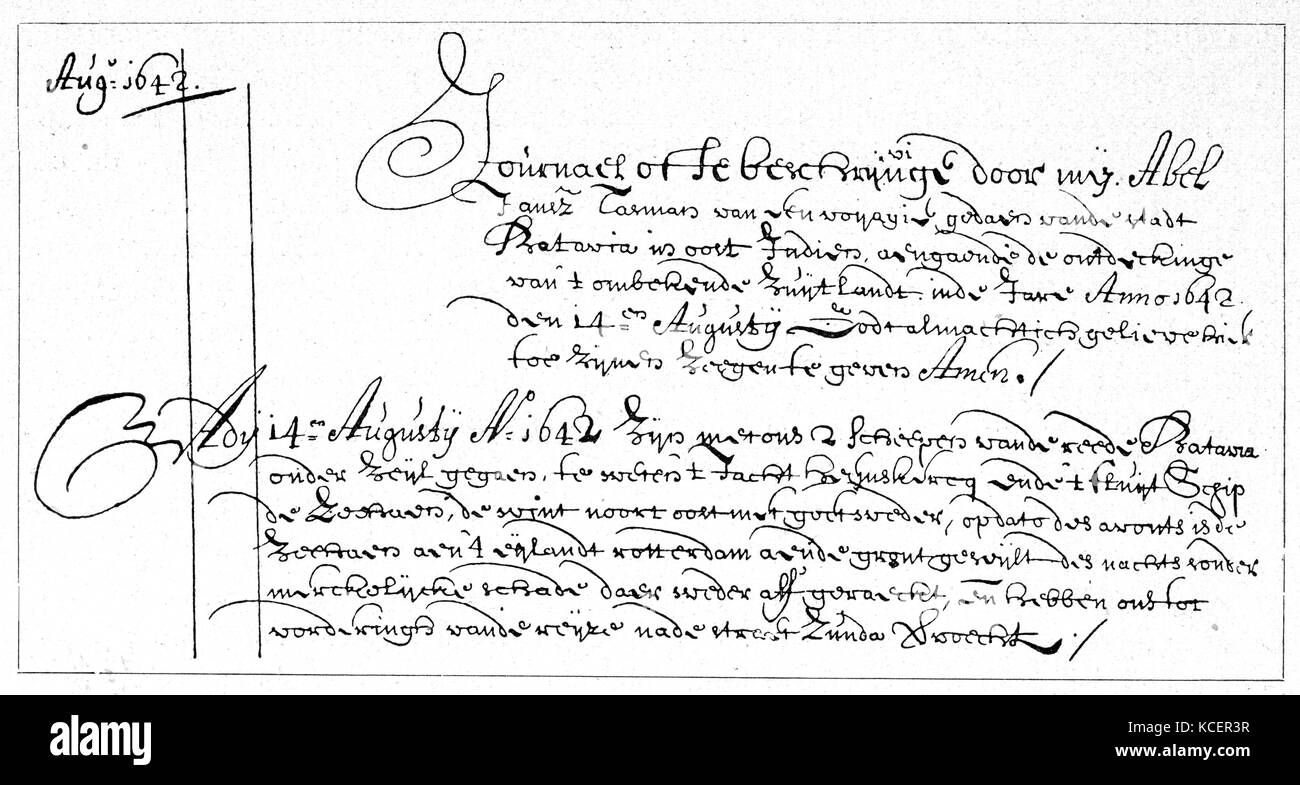 Augu: 1642.
Journael ofte beschrijvinge door mij. Abel
Jansz Tasman van een voijagie gedaen vande stadt
Batavia in oost Indien, aengaende de ontdeckinge
van't onbekende Zuijtlandt. inde Jare Anno 1642.
den 14en Augustij Godt almachtich gelieve hier
toe Zijnen Zeegen te geven Amen./
Adij 14en Augustij Ao 1642 Zijn met ons 2 scheepen vande reede Batavia
onder Zeijl gegaen, te weten 't Jacht heemskercq ende 't fluijt Schip
de Zeehaen, de wint noort oost met goet weder, op dato des avonts is de
Zeehaen aen't eijlandt rotterdam aende gront geseijlt des nachts sonder
merckelijcke schade daer weder aff geraeckt, en hebben ons tot
vorderingh vande reijze nade straet Zunda
a
alamy stock photo
a
a
alamy
KCER3R
www.alamy.com